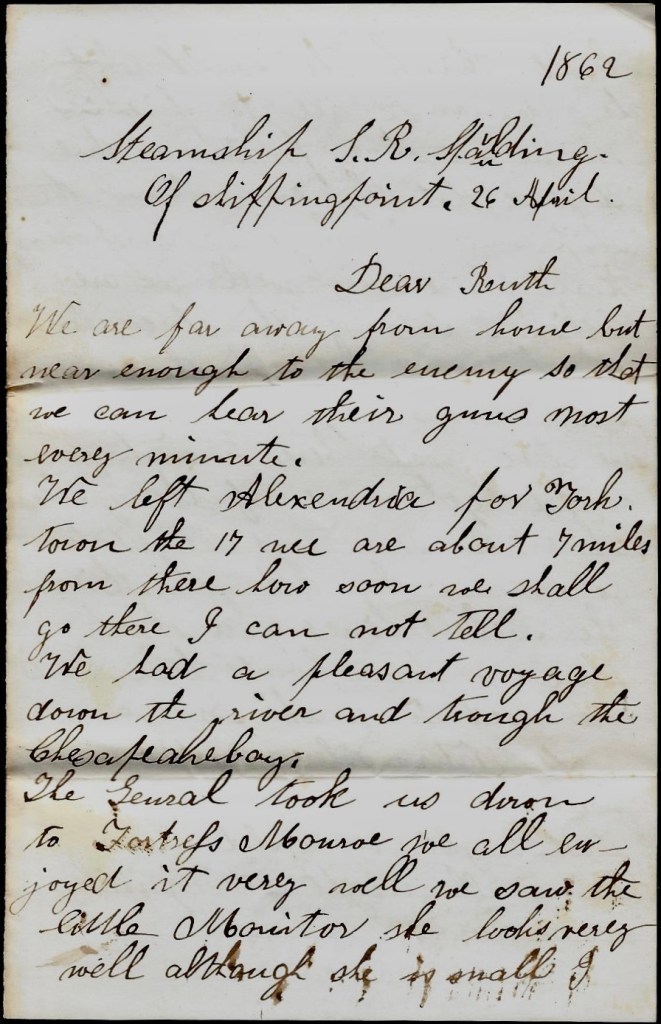 1862
Steamship S. R. Spaulding.
Of shippingpoint. 26 April.
Dear Ruth
We are far away from home but
near enough to the enemy so that
we can hear their guns most
every minute.
We left Alexendria for York.
town the 17 wee are about 7 miles
from there how soon we shall
go there I can not tell.
We had a pleasant voyage
down the river and trough the
Chesapeakebay.
The Genral took us down
to Fortress Monroe we all en-
joyed it verey well we saw the
little Monitor she looks verey
well although she is small I